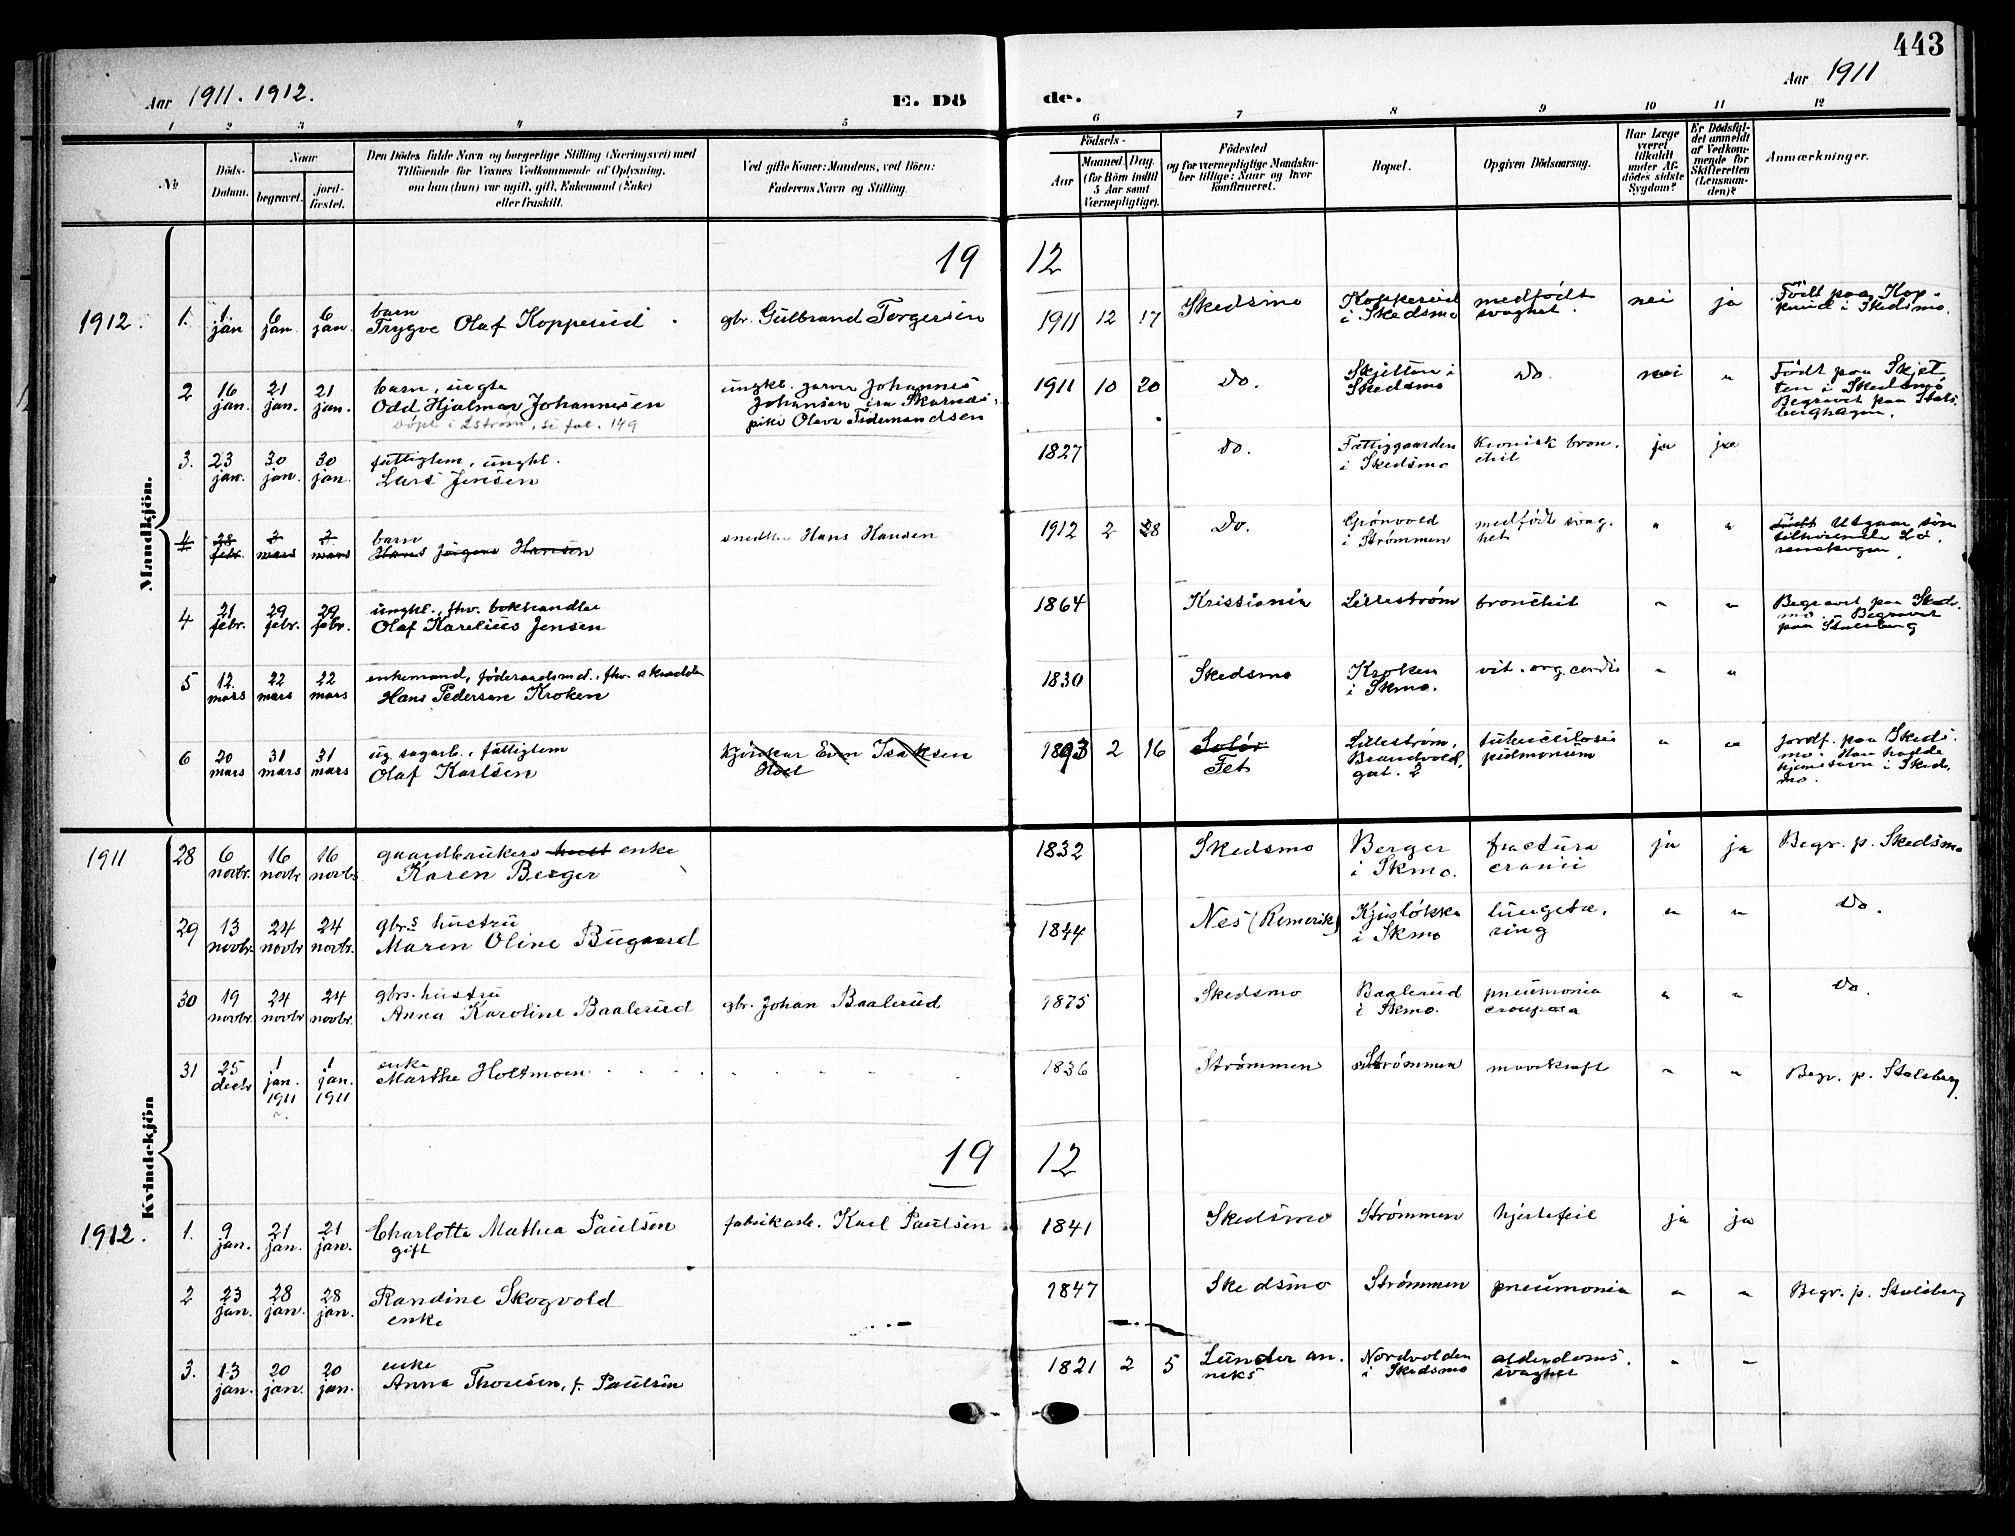 443
Aar 1911. 1912.
E. Dö
de.
Aar 1911
1 2 3 4 5 6 7 8 9 10 11 12
№
Döds-Datum.
Naar
begravet.
jord-fæstet.
Den Dödes fulde Navn og borgerlige Stilling (Næringsvei) med
Tilföiende for Voxnes Vedkommende af Oplysning,
om han (hun) var ugift, gift, Enkemand (Enke)
eller fraskilt.
Ved gifte Koner: Mandens, ved Börn:
Faderens Navn og Stilling.
Födsels-
Aar
Maaned, Dag.
(for Börn indtil
5 Aar samt
Værnepligtige).
Födested
og for værnepligtige Mandska-
ber tillige: Naar og hvor
konfirmeret.
Bopæl.
Opgiven Dödsaarsag.
Har Læge
været
tilkaldt
under Af-
dödes sidste
Sygdom?
Er Dödsfal-
det anmeldt
af Vedkom-
mende for
Skifteretten
(Lensman-
den)?
Anmærkninger.
Mandkjön.
19 12
1912. 1. 1. jan 6 jan. 6 jan. barn
Trygve Olaf Kopperud. gbr. Gulbrand Torgersen 1911 12 17 Skedsmo Kopperud i Skedsmo medfödt svaghet. nei ja Födt paa Kop-
perud i Skedsmo.
2 16 jan. 21 jan. 21 jan. barn, uegte
Odd Hjalmar Johannesen
Döpt i Lström, se fol. 149
ungkl. garver Johannes
Johansen fra
pike Olava Tidemandsen
1911 10 20 Do. Skjetten i Skedsmo Do. nei " Födt paa Skjet-
ten i Skedsmo
Begravet paa Stals-
berghagen.
3. 23 jan. 30 jan. 30 jan. fattiglem, ungkl.
Lars Jensen 1827 Do. Fattiggaarden i Skedsmo Kronisk bron-
chit ja ja
4 28 febr. 3 mars 3 mars barn
Hans Jörgen Hansen snedker Hans Hansen 1912 2 28 Do. Grönvold i Strömmen medfödt svag-
het " " Födt Utgaar som
tilhörende Lö-
renskogen.
4 21 febr. 29 febr. 29 febr. ungkl., fhv. bokhandler
Olaf Karelius Jensen 1864 Kristiania Lilleström bronchit " " Begravet paa Skeds-
mo. Begravet
paa Stalsberg
5 12. mars 22 mars 22 mars enkemand, föderaadsmd., fhv. skrædder
Hans Pedersen Kroken 1830 Skedsmo Kroken i Skmo. vit. org. cordis " "
6 20 mars 31 mars 31 mars ug. sagarb., fattiglem
Olaf Karlsen Kjörekar Even Isaksen
1893 2 16 Solör
Fet Lilleström,
Brandvold,
gat. 2 tuberculosis
pulmonum " " Jordf. paa Skeds-
mo. Han hadde
hjemstavn i Skeds-
mo.
Kvindekjön
1911 28 6 novbr. 16 novbr. 16 novbr. gaardbrukers hust enke
Karen Berger 1832 Skedsmo Berger i Skmo. fractura
cranii ja ja Begr. p. Skedsmo
29 13 novbr. 24 novbr. 24 novbr. gbr.s hustru
Maren Oline Bugaard 1844 Nes (Romerike) Kjuslökka i Skmo lungetæ-
ring " " Do.
30 19 novbr. 24 novbr. 24 novbr. gbrs. hustru
Anna Karoline Baalerud gbr. Johan Baalerud 1875 Skedsmo Baalerud i Skmo. pneumonia
crouposa " " Do.
31 25 decbr 1 jan. 1911 1 jan. 1911 enke
Marthe Holtmoen 1836 Strömmen Strömmen " " Begr. p. Stalsberg.
19 12
1912. 1. 9 jan. 21 jan. 21 jan. Charlotte Mathea Paulsen
gift fabrikarb. Karl Paulsen 1841 Skedsmo Strömmen hjertefeil ja ja
2 23 jan. 28 jan. 28 jan. Randine Skogvold
enke 1847 Skedsmo Strömmen pneumonia " " Begr. p. Stalsberg
3. 13 jan. 20 jan. 20 jan. enke
Anna Thoresen, f. Paulsen 1821 2 5 Lunder an-
neks Nordvolden i Skedsmo alderdoms-
svaghet " "